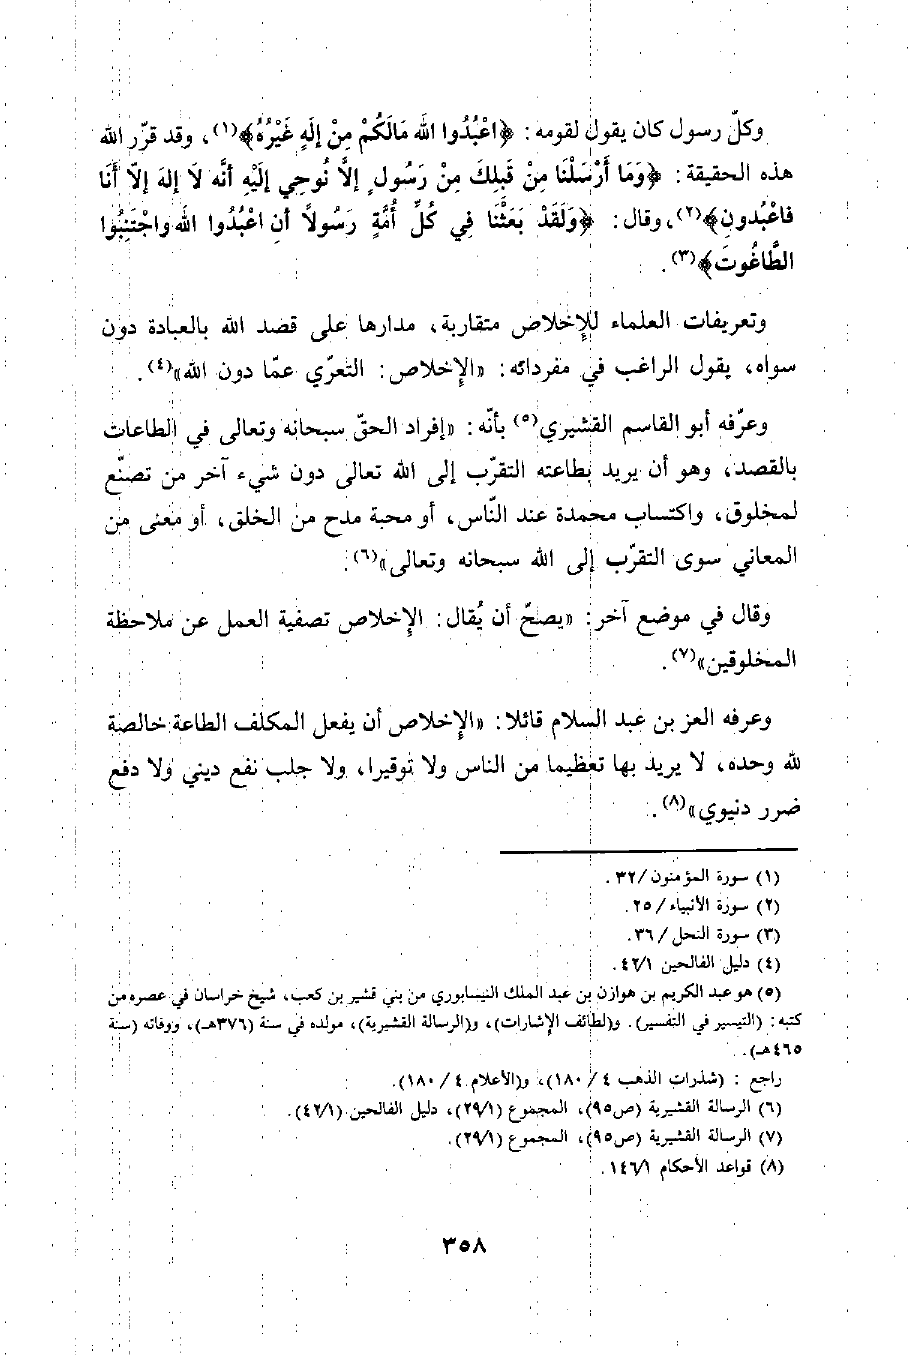 وكلّ رسول كان يقول لقومه: ﴿اعْبُدُوا الله مَالَكُمْ مِنْ إلَهٍ غَيْرُهُ﴾(١)، وقد قرّر الله
هذه الحقيقة: ﴿وَمَا أَرْسَلْنَا مِنْ قَبلِكَ مِنْ رَسُولٍ إلاَّ نُوحِي إلَيْهِ أنَّه لاَ إلهَ إلاّ أنَا
فاعْبُدونِ﴾(٢)، وقال: ﴿وَلَقَدْ بَعَثْنَا فِي كُلِّ أُمَّةٍ رَسُولاً أن اعْبُدُوا الله واجْتَنِبُوا
الطَّاغُوتَ﴾(٣).
وتعريفات العلماء للإخلاص متقاربة، مدارها على قصد الله بالعبادة دون
سواه، يقول الراغب في مفرداته: «الإخلاص: التعرّي عمّا دون الله»(٤).
وعرّفه أبو القاسم القشيري(٥) بأنّه: «إفراد الحقّ سبحانه وتعالى في الطاعات
بالقصد، وهو أن يريد بطاعته التقرّب إلى الله تعالى دون شيء آخر من تصنّع
لمخلوق، واكتساب محمدة عند النّاس، أو محبة مدح من الخلق، أو معنى من
المعاني سوى التقرّب إلى الله سبحانه وتعالى»(٦).
وقال في موضع آخر: «يصحّ أن يُقال: الإخلاص تصفية العمل عن ملاحظة
المخلوقين»(٧).
وعرفه العز بن عبد السلام قائلا: «الإخلاص أن يفعل المكلف الطاعة خالصة
لله وحده، لا يريد بها تعظيما من الناس ولا توقيرا، ولا جلب نفع ديني ولا دفع
ضرر دنيوي»(٨).
(١) سورة المؤمنون/٣٢.
(٢) سورة الأنبياء/٢٥.
(٣) سورة النحل/٣٦.
(٤) دليل الفالحين ٤٢/١.
(٥) هو عبد الكريم بن هوازن بن عبد الملك النيسابوري من بني قشير بن كعب، شيخ خراسان في عصره من
كتبه: (التيسير في التفسير). و(لطائف الإشارات)، و(الرسالة القشيرية)، مولده في سنة (٣٧٦هـ)، ووفاته (سنة
٤٦٥هـ).
راجع : (شذرات الذهب ٤/١٨٠)، و(الأعلام ٤/١٨٠).
(٦) الرسالة القشيرية (ص٩٥)، المجموع (٢٩/١)، دليل الفالحين (٤٢/١).
(٧) الرسالة القشيرية (ص٩٥)، المجموع (٢٩/١).
(٨) قواعد الأحكام ١٤٦/١.
٣٥٨